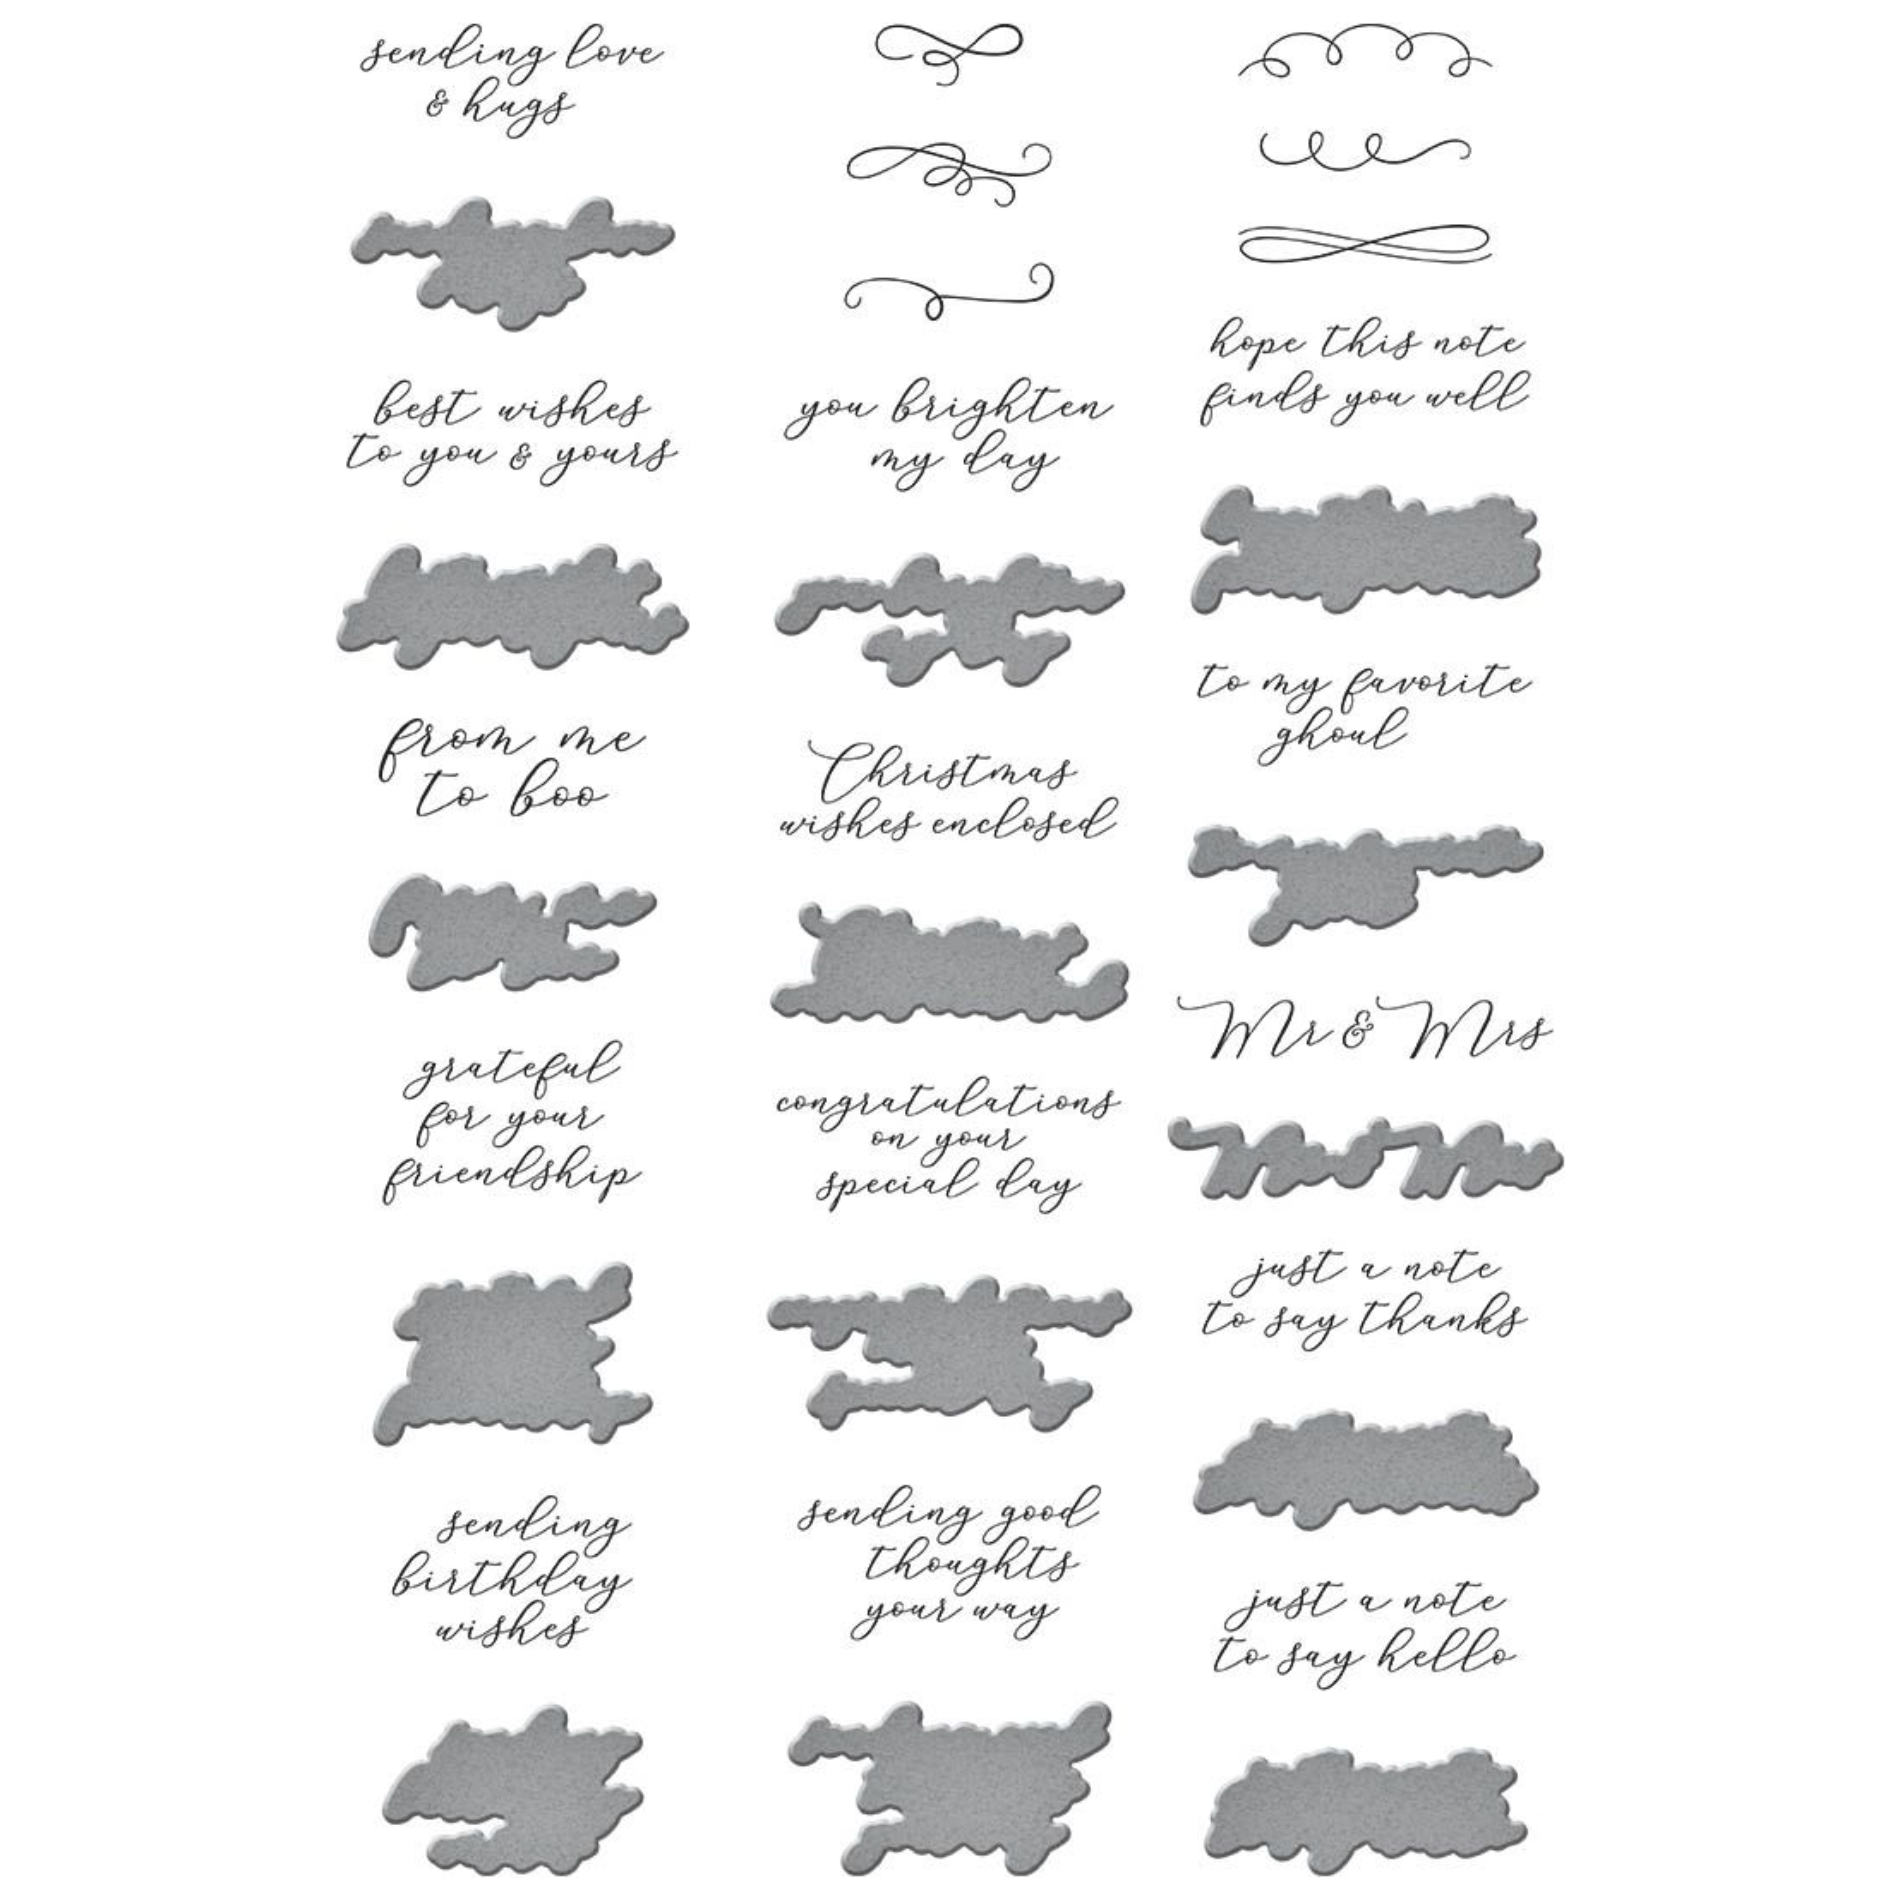 sending love
& hugs
best wishes
to you & yours
from me
to boo
grateful
for your
friendship
sending
birthday
wishes
you brighten
my day
Christmas
wishes enclosed
congratulations
on your
special day
sending good
thoughts
your way
hope this note
finds you well
to my favorite
ghoul
Mr & Mrs
just a note
to say thanks
just a note
to say hello